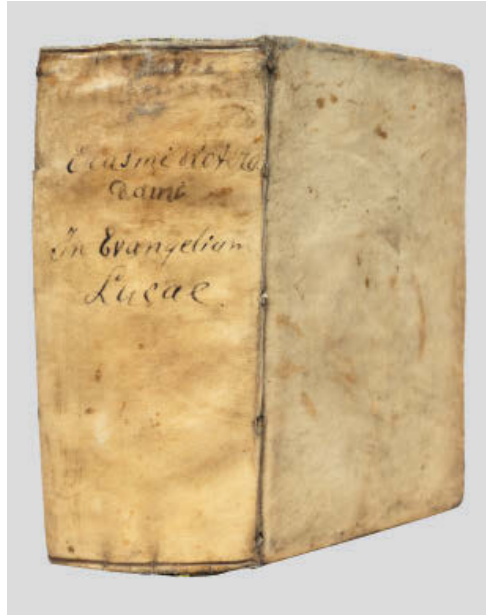 Erasmi Rotero
dami
In Evangelium
Lucae.